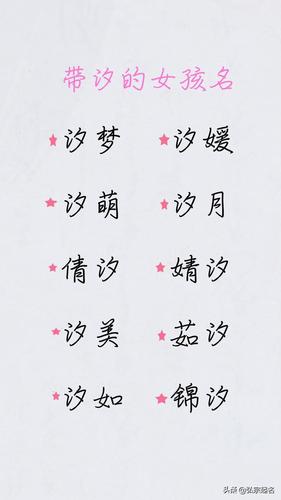 带汐的女孩名
★汐梦 ★汐媛
★汐萌 ★汐月
★倩汐 ★婧汐
★汐美 ★茹汐
★汐如 ★锦汐
头条 @弘宗起名